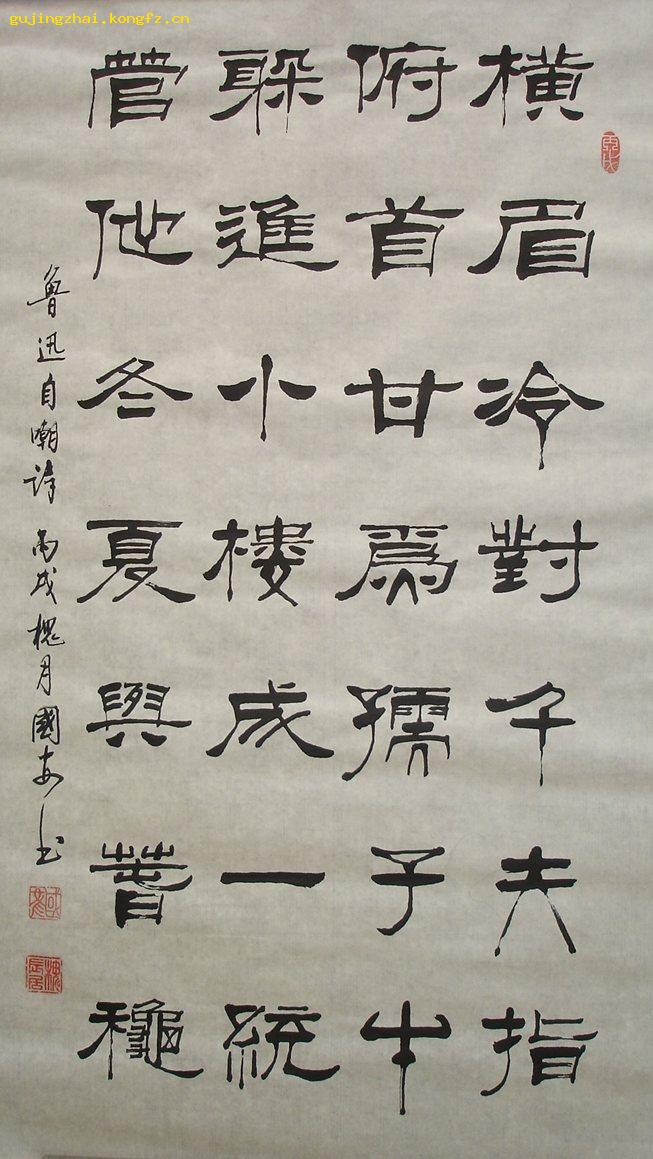 gujingzhai.kongfz.cn
橫眉冷對千夫指
俯首甘爲孺子牛
躲進小樓成一統
管他冬夏與萅龝
魯迅自嘲詩 丙戌槐月國安书